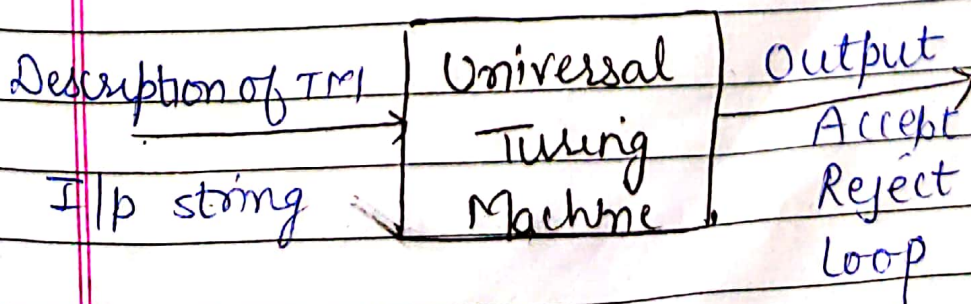 Description of TM
I/p string
Universal
Turing
Machine
Output
Accept
Reject
Loop